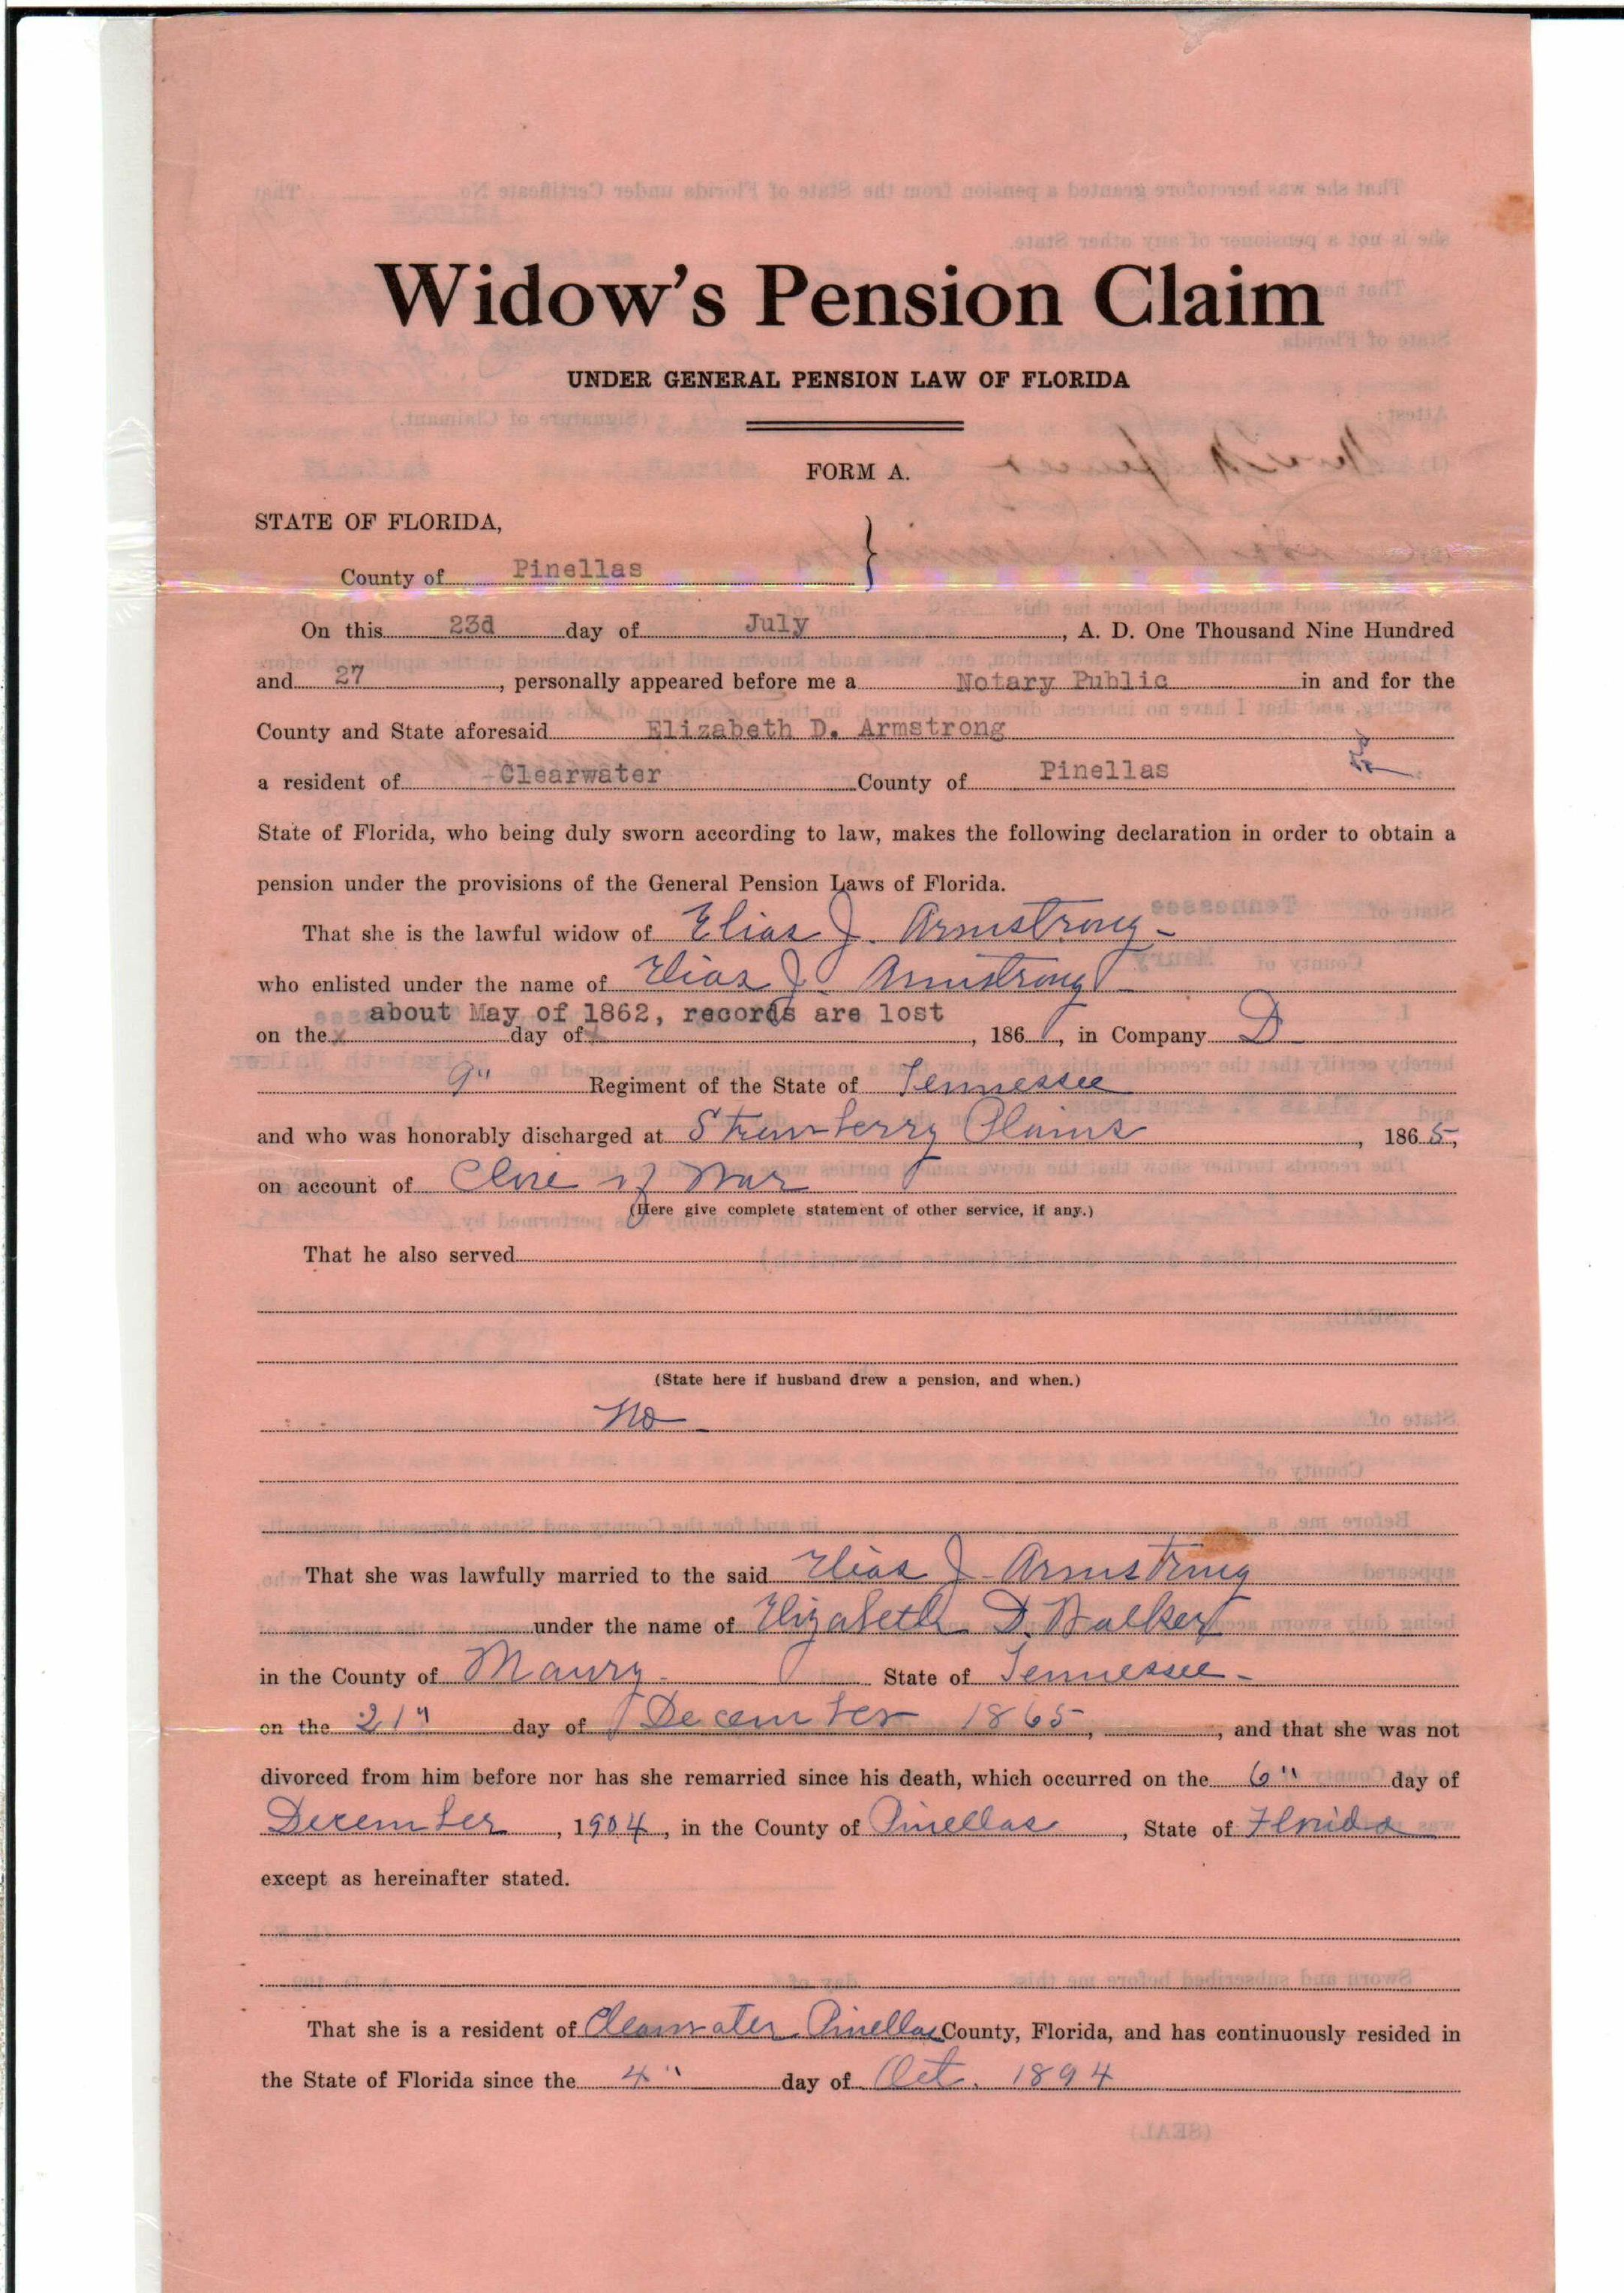 Widow's Pension Claim
UNDER GENERAL PENSION LAW OF FLORIDA
FORM A.
STATE OF FLORIDA,
County of Pinellas }
On this 23d day of July, A. D. One Thousand Nine Hundred
and 27, personally appeared before me a Notary Public in and for the
County and State aforesaid Elizabeth D. Armstrong
a resident of Clearwater County of Pinellas
State of Florida, who being duly sworn according to law, makes the following declaration in order to obtain a
pension under the provisions of the General Pension Laws of Florida.
That she is the lawful widow of Elias J. Armstrong
who enlisted under the name of Elias J. Armstrong
about May of 1862, records are lost
on the x day of x, 186, in Company D
9" Regiment of the State of Tennessee
and who was honorably discharged at Strawberry Plains, 1865,
on account of Close of War
(Here give complete statement of other service, if any.)
That he also served
(State here if husband drew a pension, and when.)
No
That she was lawfully married to the said Elias J. Armstrong
under the name of Elizabeth D. Walker
in the County of Maury State of Tennessee
on the 21" day of December 1865, , and that she was not
divorced from him before nor has she remarried since his death, which occurred on the 6" day of
December, 1904, in the County of Pinellas, State of Florida
except as hereinafter stated.
That she is a resident of Clearwater Pinellas County, Florida, and has continuously resided in
the State of Florida since the 4" day of Oct. 1894